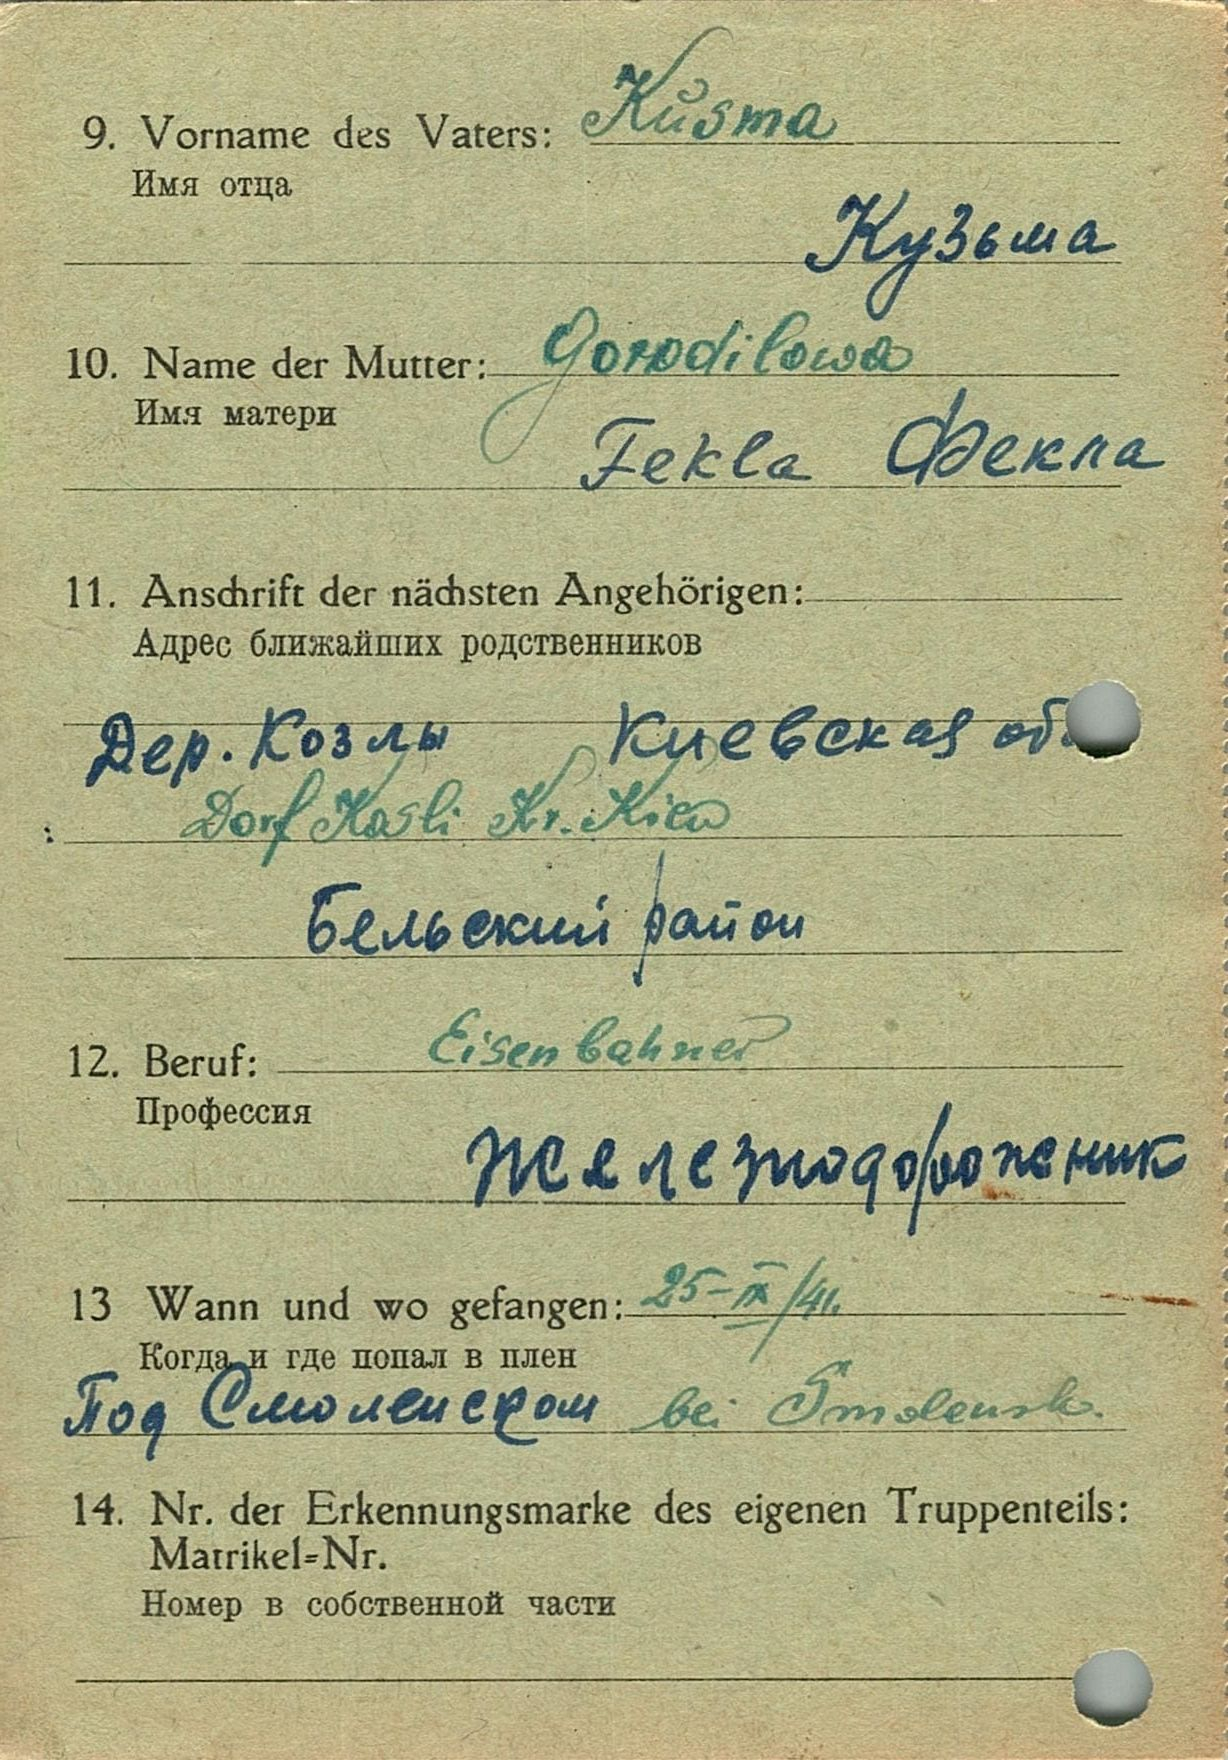 9. Vorname des Vaters: Kŭsma
Имя отца
Кузьма
10. Name der Mutter: Gorodilowa
Имя матери
Fekla Фекла
11. Anschrift der nächsten Angehörigen:
Адрес ближайших родственников
Дер. Козлы Киевская об
Dorf Kosli Kr. Kiew
Бельский район
12. Beruf: Eisenbahner
Профессия
Железнодорожник
13 Wann und wo gefangen: 25-IX/41.
Когда и где попал в плен
Под Смоленском bei Smolensk.
14. Nr. der Erkennungsmarke des eigenen Truppenteils:
Matrikel=Nr.
Номер в собственной части